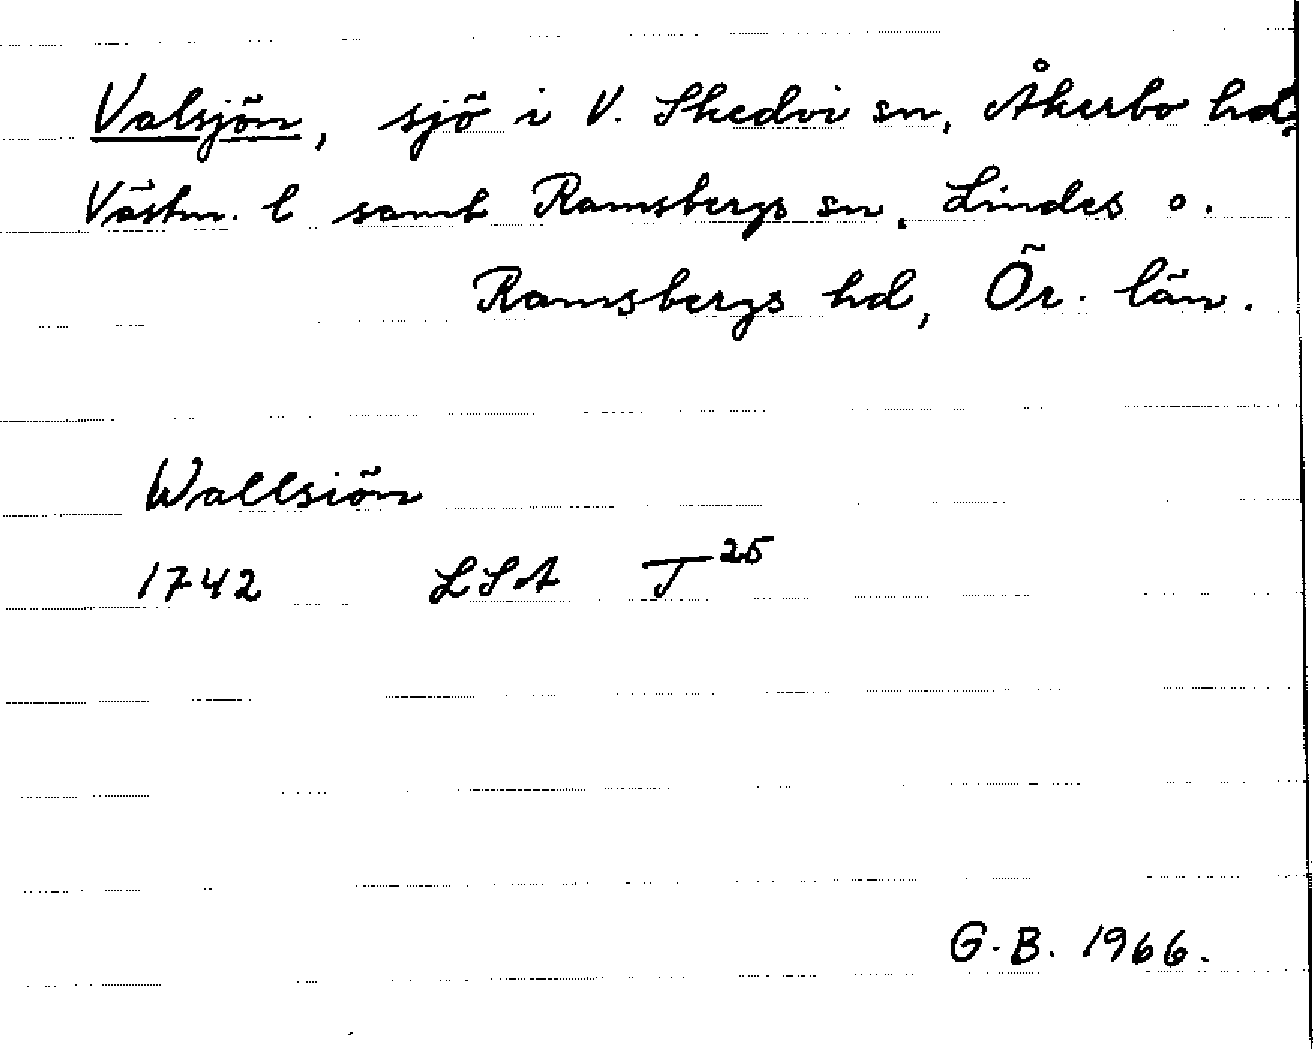 Valsjön, sjö i V. Skedvi sn, Åkerbo hd,
Västm. l samt Ramsbergs sn, Lindes o.
Ramsbergs hd, Ör. län.
Wallsiön
1742 LSA T 25
G.B. 1966.